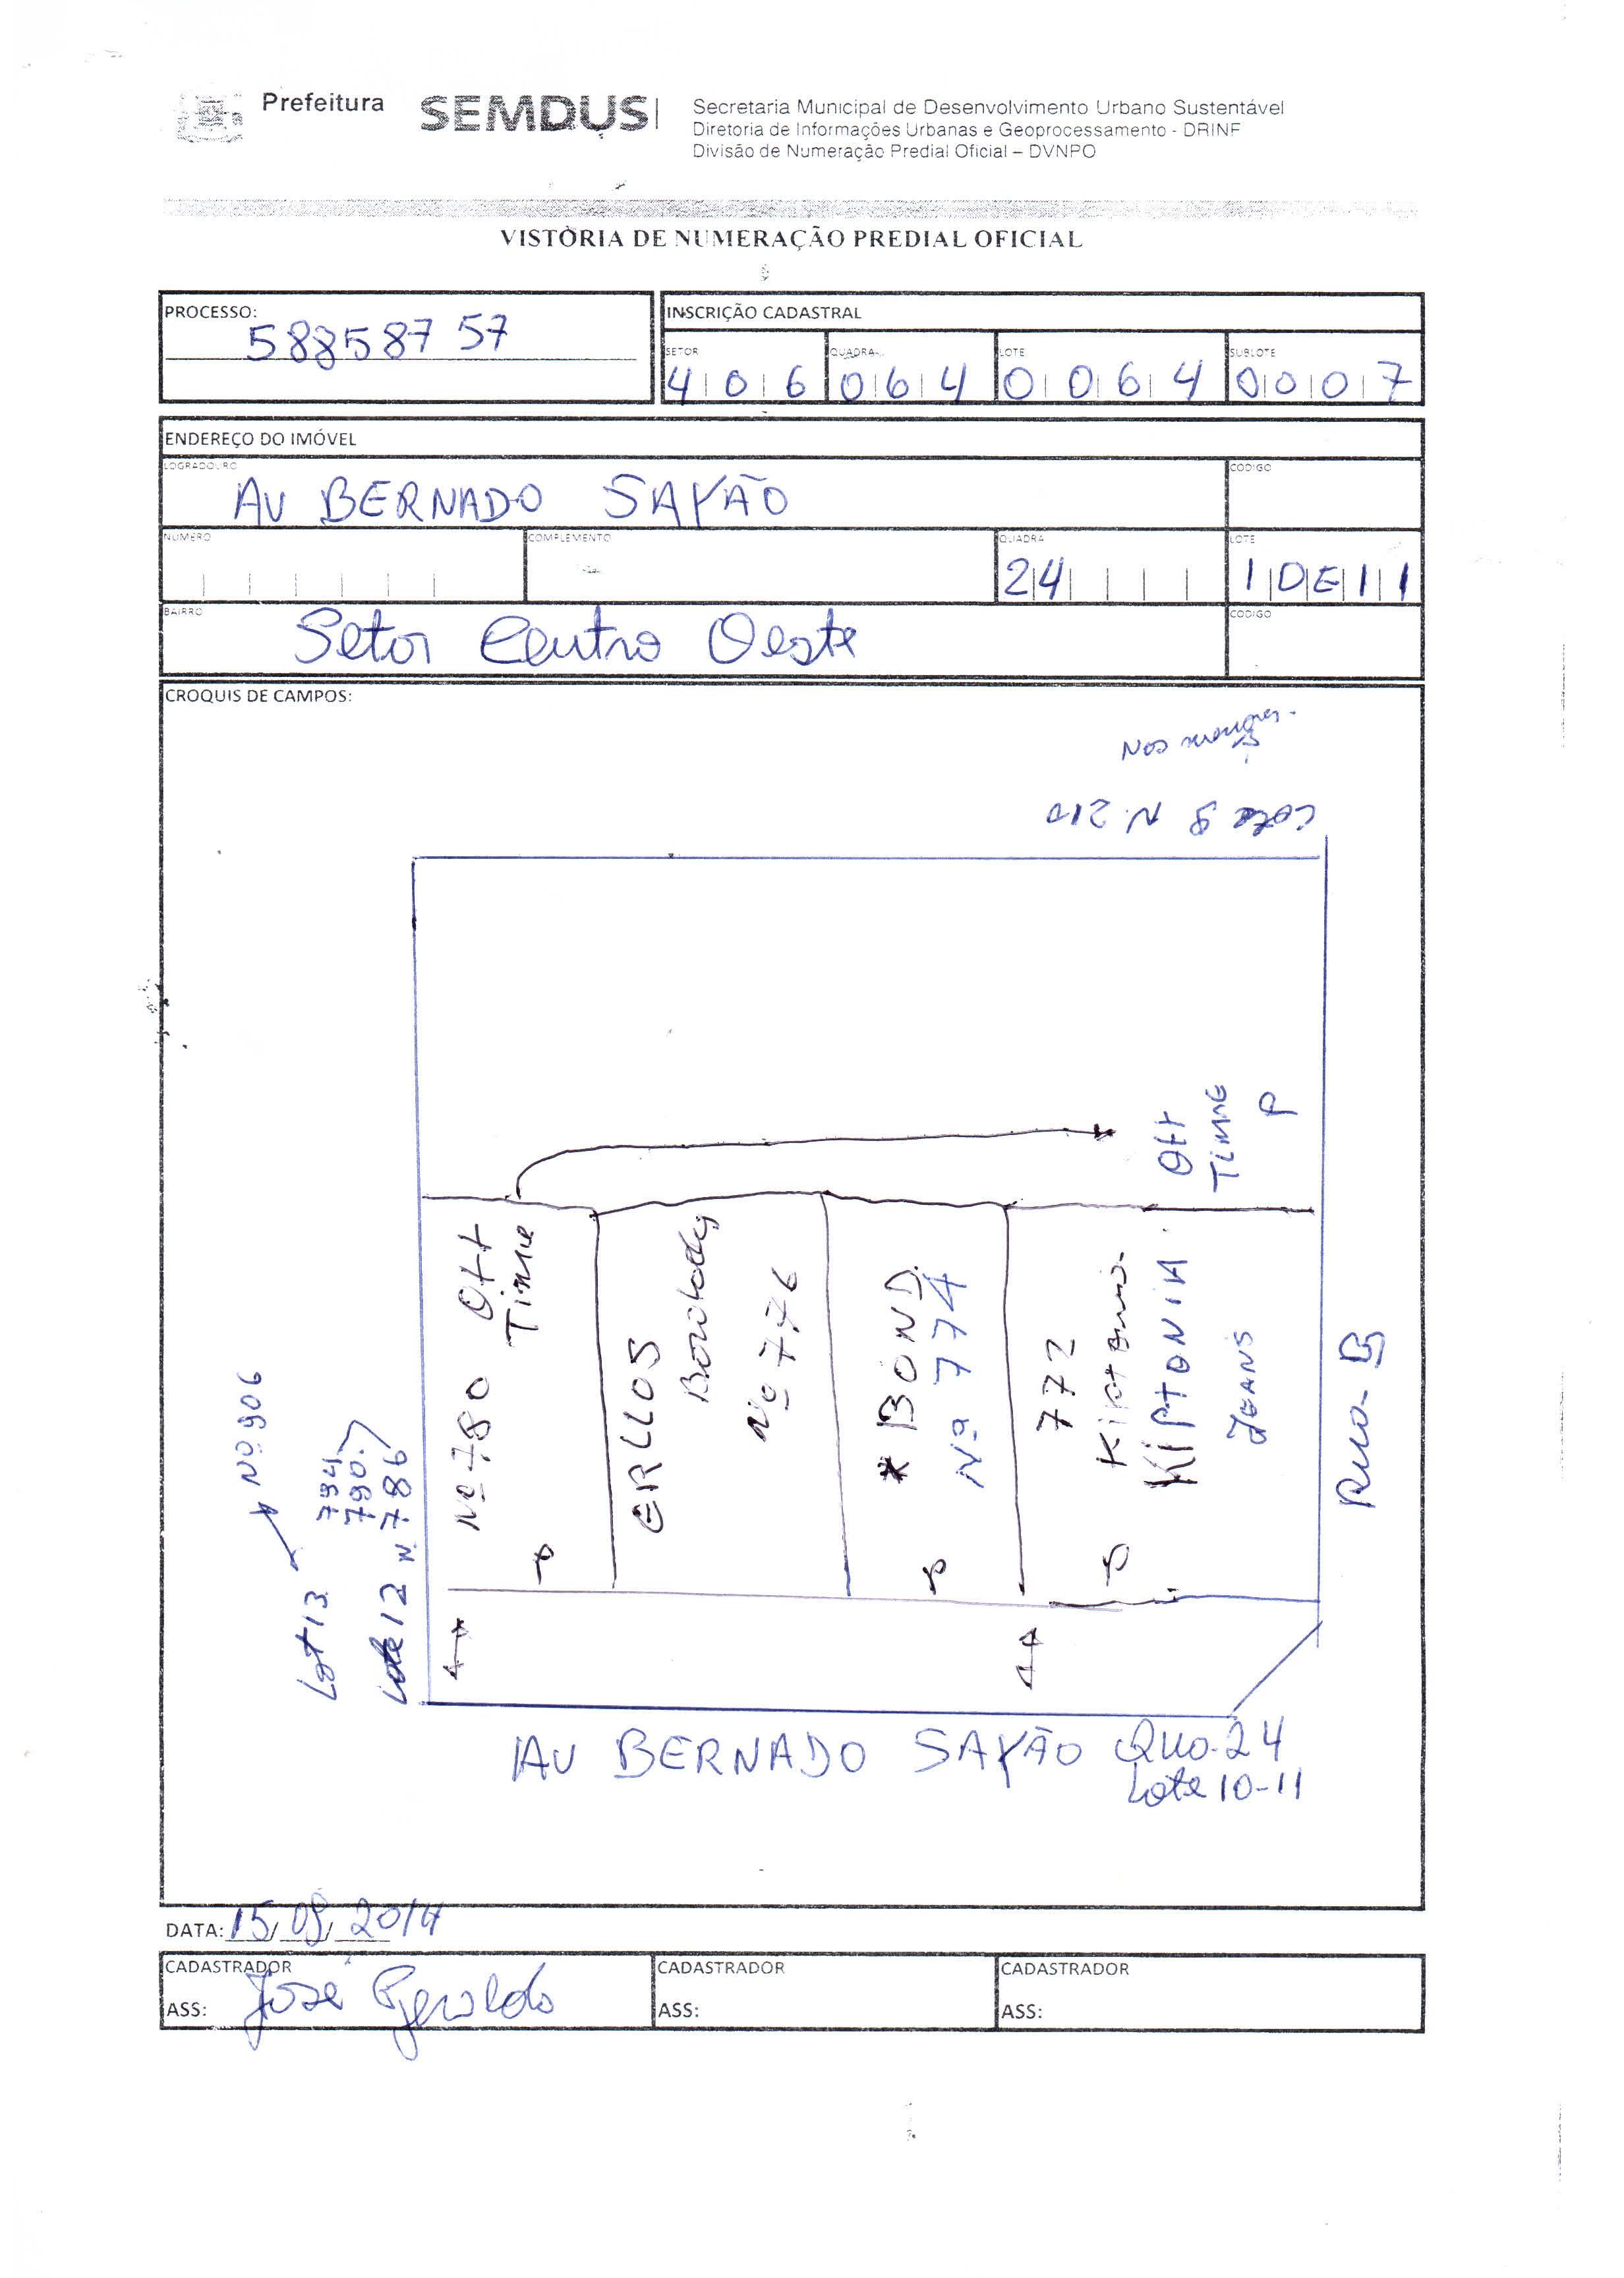 Prefeitura
SEMDUS
Secretaria Municipal de Desenvolvimento Urbano Sustentável
Diretoria de Informações Urbanas e Geoprocessamento - DRINF
Divisão de Numeração Predial Oficial – DVNPO
VISTORIA DE NUMERAÇÃO PREDIAL OFICIAL
PROCESSO:
58858757
INSCRIÇÃO CADASTRAL
SETOR QUADRA LOTE SUBLOTE
406 064 0064 0007
ENDEREÇO DO IMÓVEL
LOGRADOURO CODIGO
AV BERNADO SAYÃO
NUMERO COMPLEMENTO QUADRA LOTE
24 10E11
BAIRRO CODIGO
Setor Centro Oeste
CROQUIS DE CAMPOS:
Lote 8 N. 210
Ott
Time
P
Nº 780 Ott
Time
ERLLOS
Nº 776
* BOND.
Nº 774
772
KiPtONiA
JEANS
Rua-B
Nº 906
Lot 13
794
790
Lote 12 N. 786
AV BERNADO SAYÃO Qua. 24
Lote 10-11
DATA: 15/09/2014
CADASTRADOR CADASTRADOR CADASTRADOR
ASS: José Geraldo ASS: ASS: